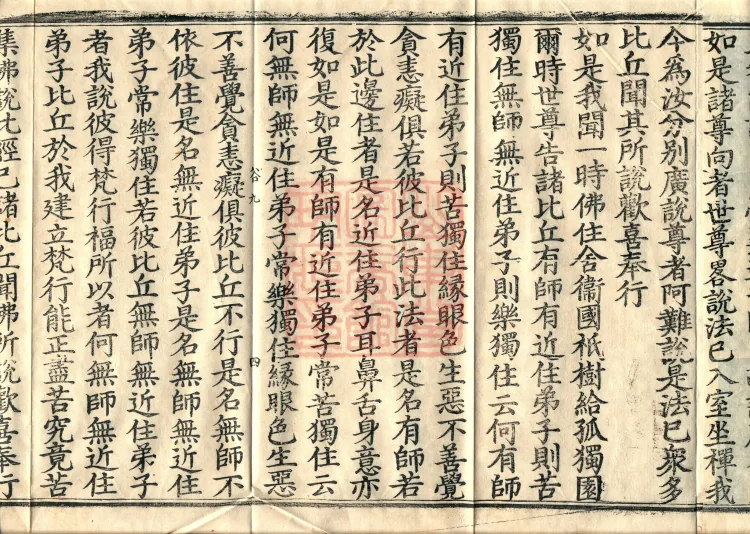 如是諸尊向者世尊畧說法已入室坐禪我
今為汝分別廣說尊者阿難說是法已眾多
比丘聞其所說歡喜奉行
如是我聞一時佛住舍衞國祇樹給孤獨園
爾時世尊告諸比丘有師有近住弟子則苦
獨住無師無近住弟子則樂獨住云何有師
有近住弟子則苦獨住緣眼色生惡不善覺
貪恚癡俱若彼比丘行此法者是名有師若
於此邊住者是名近住弟子耳鼻舌身意亦
復如是如是有師有近住弟子常苦獨住云
何無師無近住弟子常樂獨住緣眼色生惡
谷九
四
不善覺貪恚癡俱彼比丘不行是名無師不
依彼住是名無近住弟子是名無師無近住
弟子常樂獨住若彼比丘無師無近住弟子
者我說彼得梵行福所以者何無師無近住
弟子比丘於我建立梵行能正盡苦究竟苦
集佛說此經已諸比丘聞佛所說歡喜奉行